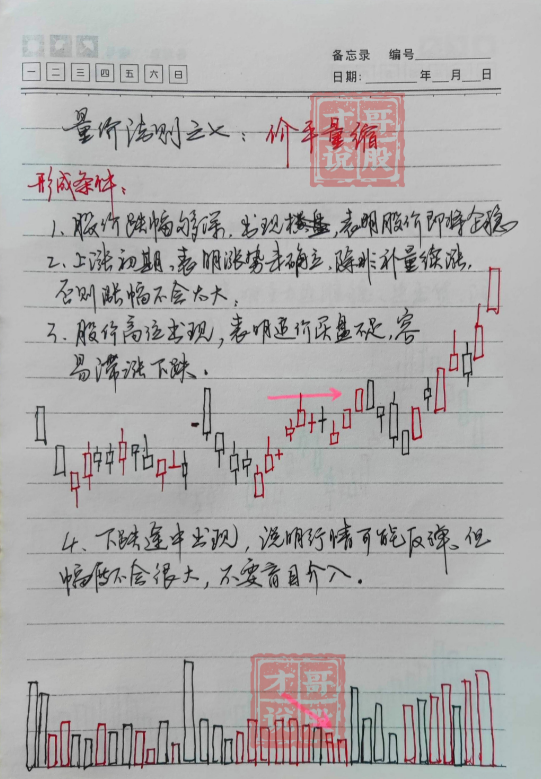 备忘录 编号
一 二 三 四 五 六 日
日期: 年 月 日
量价法则之七：价平量缩
才哥说股
形成条件：
1、股价跌幅够深，出现横盘，表明股价即将企稳
2、上涨初期，表明涨势未确立，除非补量续涨，
否则涨幅不会太大；
3、股价高位出现，表明追价买盘不足，容
易滞涨下跌。
4、下跌途中出现，说明行情可能反弹。但
幅度不会很大，不要盲目介入。
才哥说股